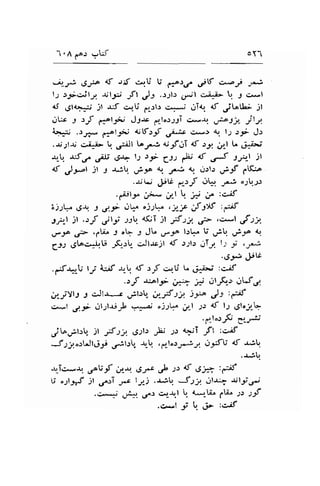 ۵۲۶
کتاب دهم ۶۰۸
شعر فرصت کافی می‌دهیم تا ثابت کند که هنری شریف
است و با حقیقت انسی دارد. ولی اگر نتواند برائت‌خود را
از خطاهائی که به‌آن نسبت دادیم ثابت کند از نتیجه‌ای که
براثر پژوهش بدست آورده‌ایم عدول نخواهیم کرد و عنان
دل خود را به دست عشقی کودکانه نخواهیم سپرد. نتیجهٔ
تحقیق ما این بود که آن‌گونه شعرها الفتی با حقیقت ندارند.
از اینرو کسی که نظم روح خود را جدی تلقی می‌کند باید
هنگام گوش دادن به شعر به هوش باشد و از اصولی که
درباره شعر بیان کردیم غافل نماند.
گفت: من نیز با این سخن موافقم.
گفتم: گلاوکن عزیز، مبارزه میان خوبی و بدی مبارزهٔ
بزرگی است، حتی بزرگتر از آنکه باور توانی کرد. از اینرو
به هوش باش تا مبادا هوس مال و جاه و مقام، حتی هوس
شعر، تو را برآن دارد که ازعدالت یادیگر قابلیت‌های روح
غافل شوی.
گفت: تحقیق ما ثابت کرد که باید گفتهٔ ترا تاییدکنم.
بی‌گمان دیگران نیز چنین خواهند کرد.
گفتم: ولی هنوز بزرگترین پاداش عدالت و والاترین
جایزه‌ای را که در این مبارزه نصیب طرفداران خوبی است
تشریح نکرده‌ایم.
گفت: اگر آنچه در نظر داری بزرگتر از پاداش‌هائی
باشد که تاکنون برشمرده‌ایم، باید پاداشی فوق‌العاده‌بزرگ
باشد.
گفتم: چیزی که در طی عمری بدین کوتاهی بدست‌آید
نمی‌تواند چندان بزرگ باشد. زیرا عمر آدمی از گهواره تا
گور در مقام مقایسه با ابدیت دمی بیش نیست.
گفت: حق با تو است.